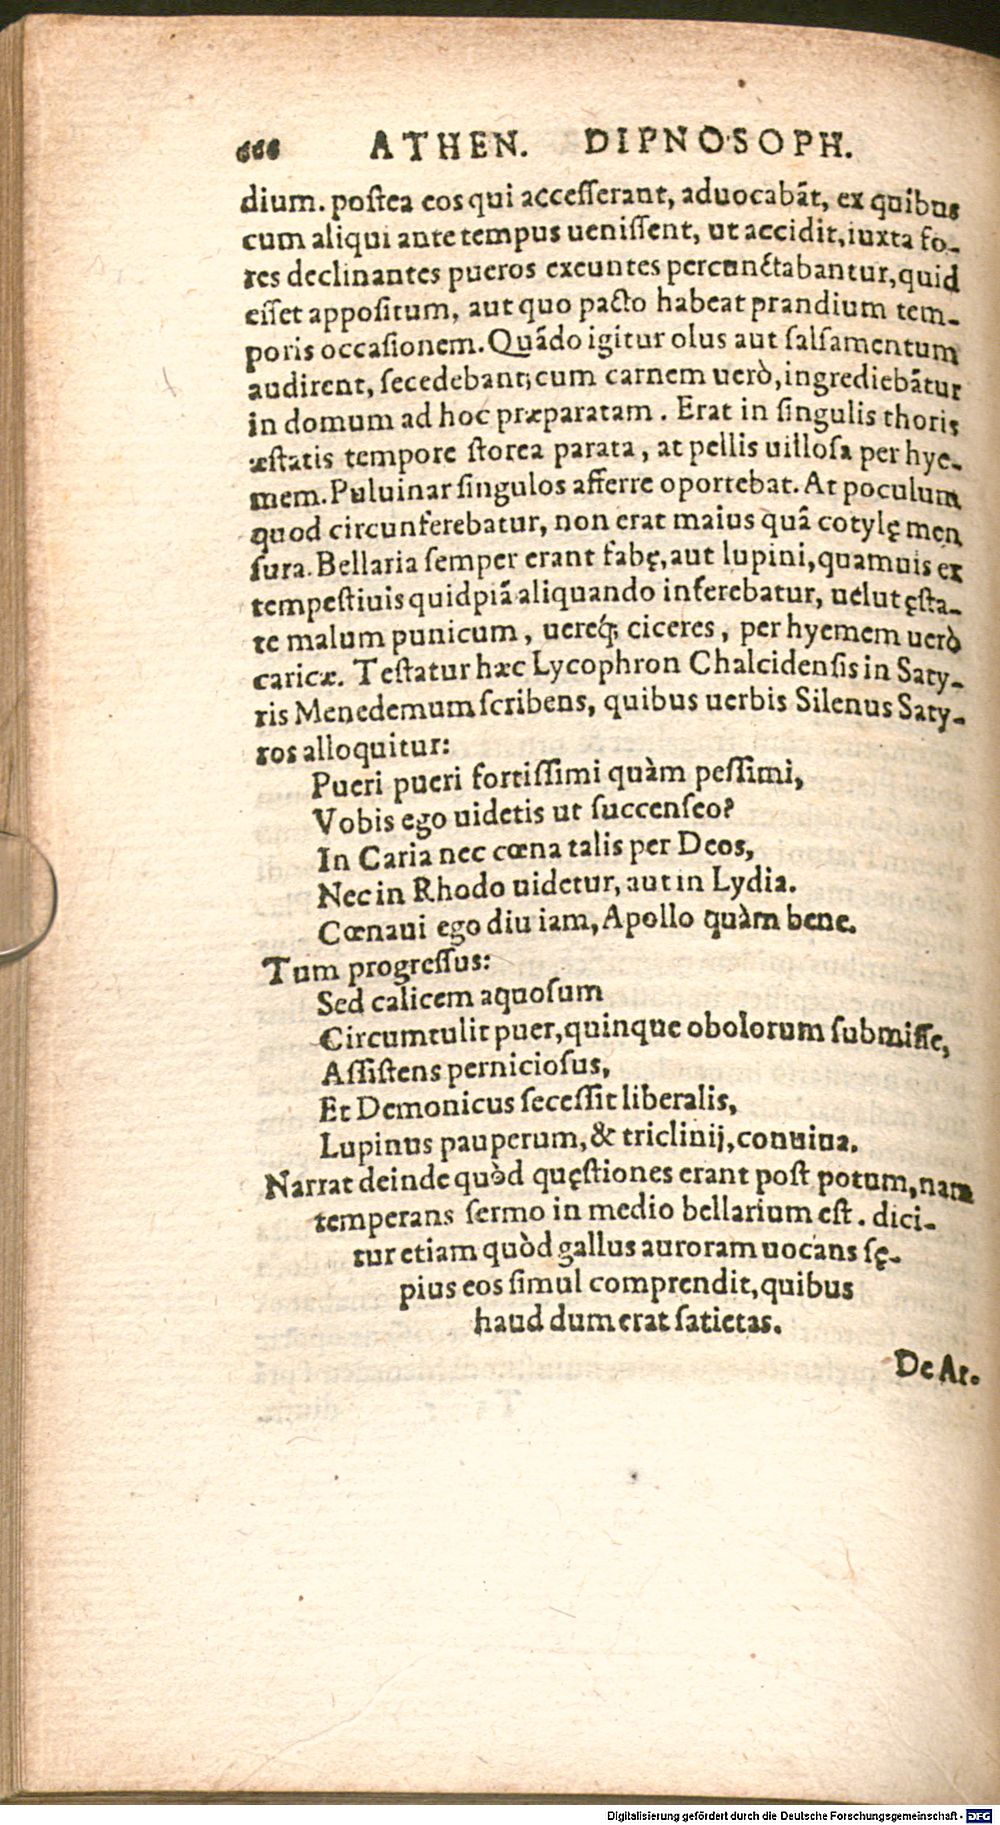 666 ATHEN. DIPNOSOPH.
dium. postea eos qui accesserant, aduocabãt, ex quibus
cum aliqui ante tempus uenissent, ut accidit, iuxta fo-
res declinantes pueros exeuntes percunctabantur, quid
esset appositum, aut quo pacto habeat prandium tem-
poris occasionem. Quãdo igitur olus aut salsamentum
audirent, secedebant; cum carnem uerò, ingrediebãtur
in domum ad hoc præparatam. Erat in singulis thoris
æstatis tempore storea parata, at pellis uillosa per hye-
mem. Puluinar singulos afferre oportebat. At poculum
quod circunferebatur, non erat maius quã cotylę men
sura. Bellaria semper erant fabę, aut lupini, quamuis ex
tempestiuis quidpiã aliquando inferebatur, uelut ęsta-
te malum punicum, uereq́; ciceres, per hyemem uerò
caricæ. Testatur hæc Lycophron Chalcidensis in Saty-
ris Menedemum scribens, quibus uerbis Silenus Saty-
ros alloquitur:
Pueri pueri fortissimi quàm pessimi,
Vobis ego uidetis ut succenseo?
In Caria nec cœna talis per Deos,
Nec in Rhodo uidetur, aut in Lydia.
Cœnaui ego diu iam, Apollo quàm bene.
Tum progressus:
Sed calicem aquosum
Circumtulit puer, quinque obolorum submisse,
Assistens perniciosus,
Et Demonicus secessit liberalis,
Lupinus pauperum, & triclinij, conuiua.
Narrat deinde quòd quęstiones erant post potum, nam
temperans sermo in medio bellarium est. dici-
tur etiam quòd gallus auroram uocans sę-
pius eos simul comprendit, quibus
haud dum erat satietas.
De Ar.
Digitalisierung gefördert durch die Deutsche Forschungsgemeinschaft - DFG